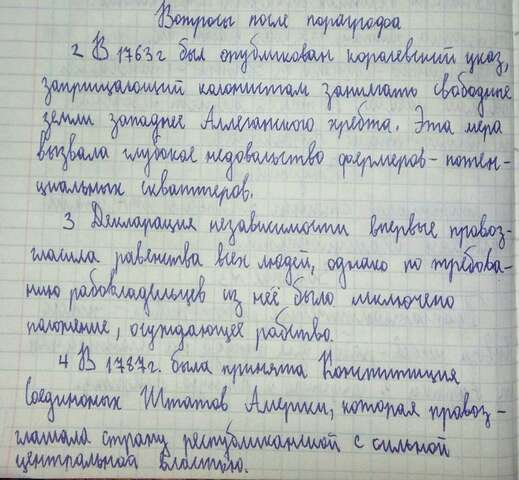 Вопросы после параграфа
2 В 1763г был опубликован королевский указ,
заприцающий колонистам занимать свободные
земли западнее Аллеганского хребта. Эта мера
вызвала глубокое недовольство фермеров - потен-
циальных скваттеров.
3 Декларация независимости впервые провоз-
гласила равенства всех людей, однако по требова-
нию рабовладельцев из неё было исключено
положение, осуждающее рабство.
4 В 1787г. была принята Конституция
Соединоных Штатов Америки, которая провоз-
глашала страну республиканской с сильной
центральной властью.